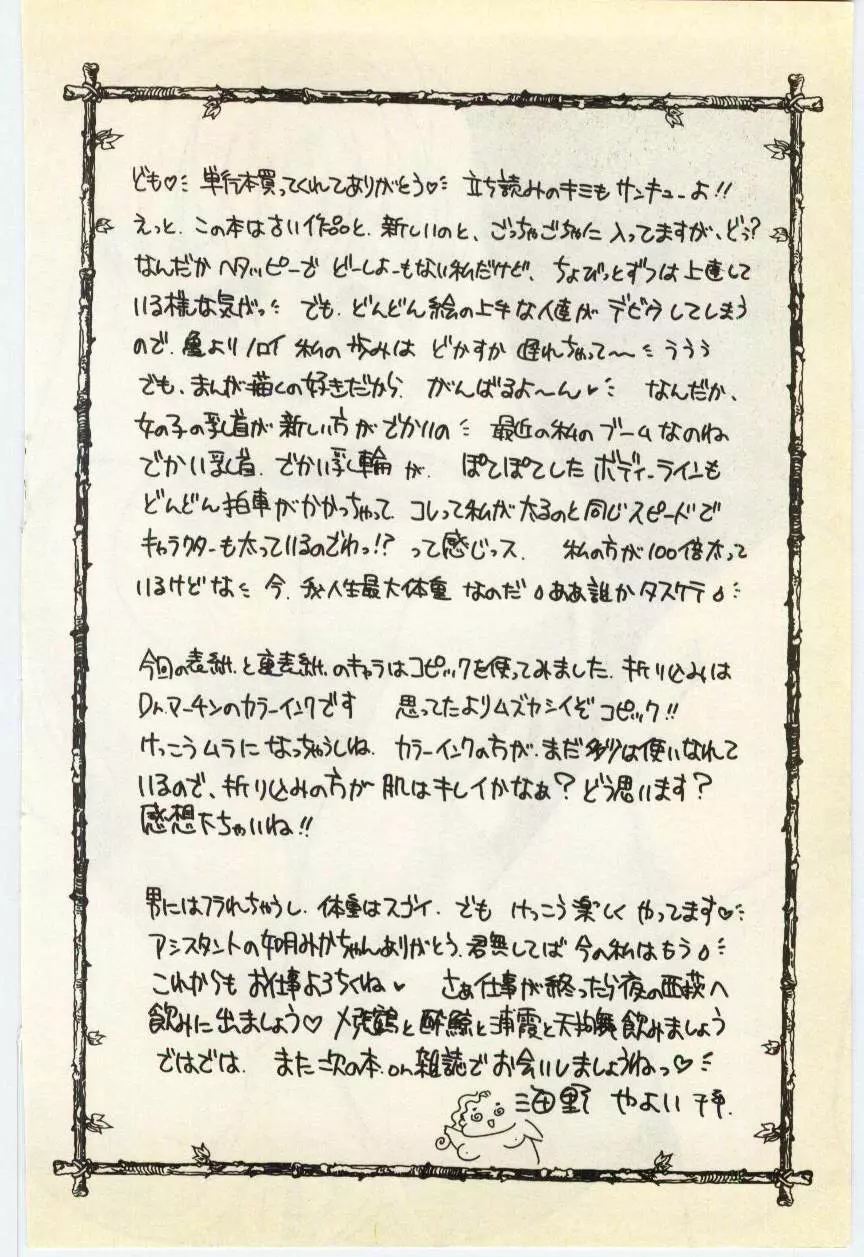 ども♡ 単行本買ってくれてありがとう♡ 立ち読みのキミもサンキューよ!!
えっと、この本は古い作品と、新しいのと、ごっちゃごちゃに入ってますが、どぅ?
なんだかヘタッピーでどーしよーもない私だけど、ちょびっとずつは上達して
いる様な気がっ でも、どんどん絵の上手な人達がデビウしてしまう
ので、亀よりノロイ私の歩みはどかすか遅れちゃって〜 ううう
でも、まんが描くの好きだから、がんばるよ〜ん♥ なんだか、
女の子の乳首が新しい方がでかいの 最近の私のブームなのね
でかい乳首、でかい乳輪が、ぽてぽてしたボディーラインも
どんどん拍車がかかっちゃって、コレって私が太るのと同じスピードで
キャラクターも太っているのでわっ!?って感じっス。 私の方が100倍太って
いるけどな 今、我人生最大体重なのだ ああ誰かタスケテ
今回の表紙と裏表紙のキャラはコピックを使ってみました。折り込みは
Dr.マーチンのカラーインクです 思ってたよりムズカシイぞコピック!!
けっこうムラになっちゃうしね。カラーインクの方が、まだ多少は使いなれて
いるので、折り込みの方が肌はキレイかなぁ?どう思います?
感想下ちゃいね!!
男にはフラれちゃうし、体重はスゴイ、でもけっこう楽しくやってます♡
アシスタントの如月みかちゃんありがとう、君無しでは今の私はもう
これからもお仕事よろちくね♥ さぁ仕事が終ったら夜の西荻へ
飲みに出ましょう♡ 〆張鶴と酔鯨と浦霞と天狗舞飲みましょう
ではでは、また次の本、on雑誌でお会いしましょうねっ♡
海野やよい拝.